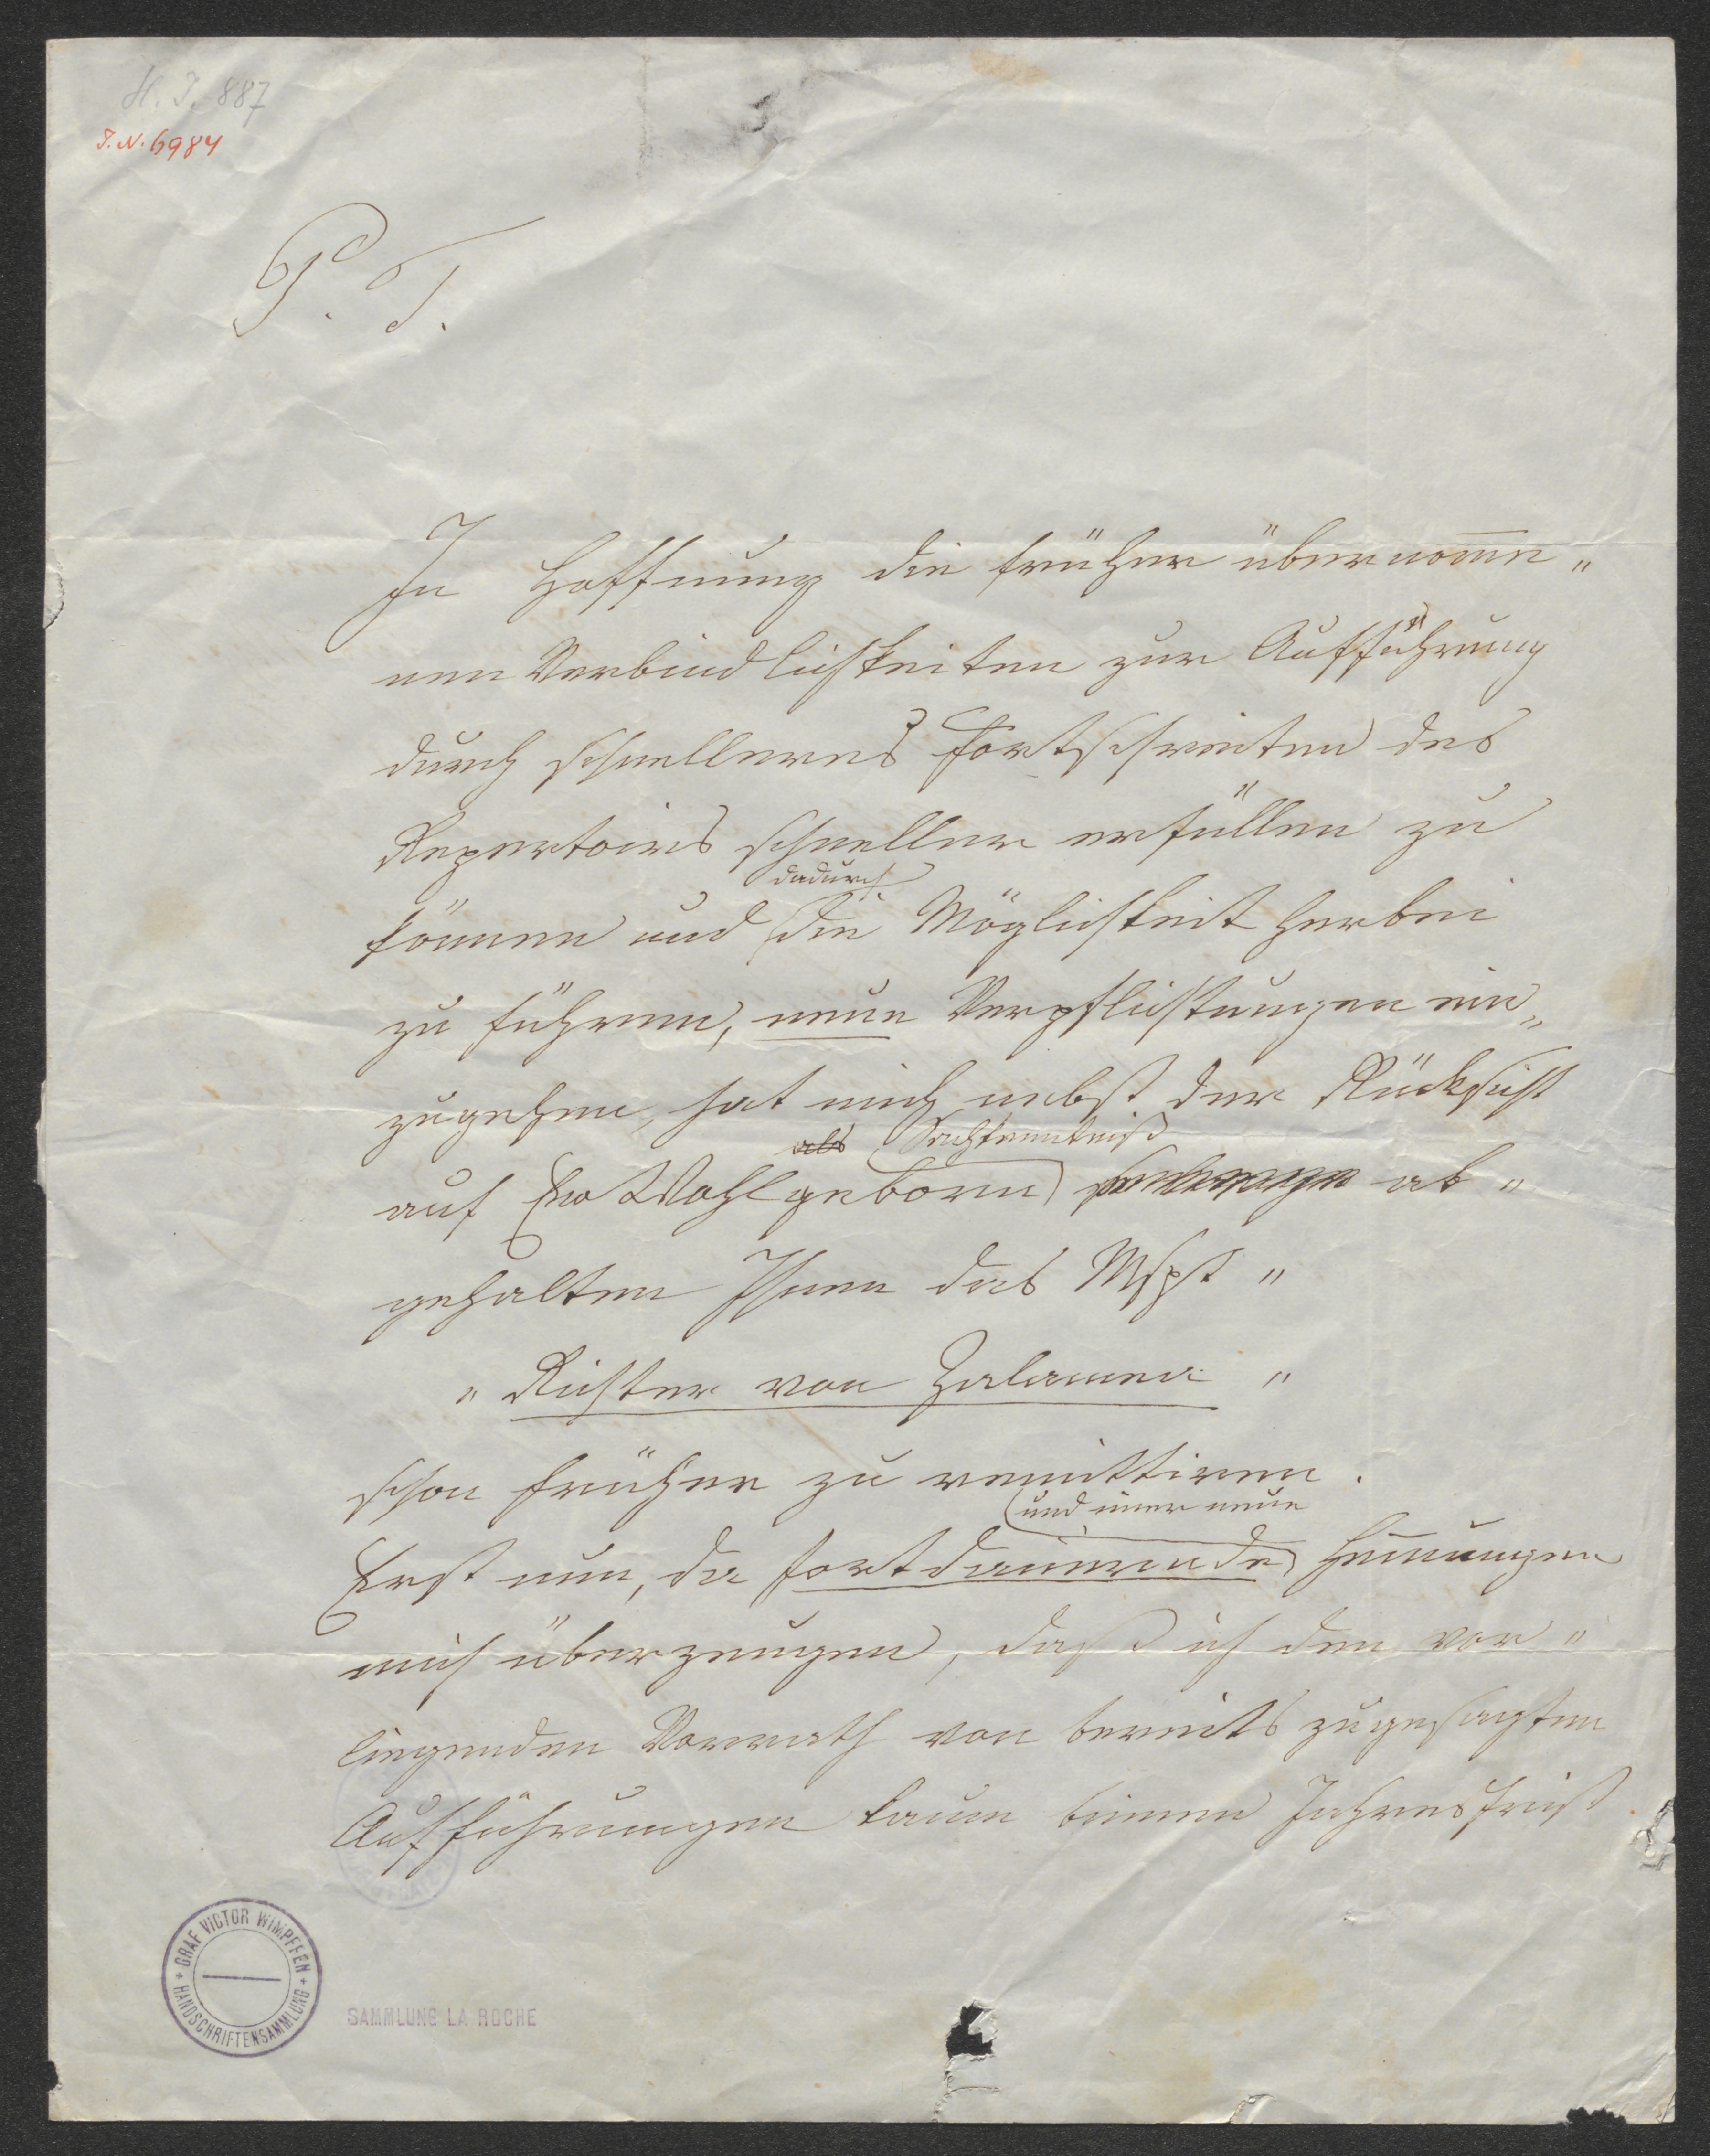 H. I. 887
I.N. 6984
P. T.
In Hoffnung die früher übernom̅e„
nen Verbindlichkeiten zur Aufführung
durch schnelleres Fortschreiten des
Repertoirs schneller erfüllen zu
dadurch
können und die Möglichkeit herbei
zu führen, neue Verpflichtungen ein„
zugehen, hat mich nebst der Rücksicht
als Sachkenntniß
auf Ew Wohlgeboren ab„
gehalten Ihnen das Mspt „
„Richter von Zalamea„
schon früher zu remittiren.
und im̅er neue
Erst nun, da fortdauernde Hem̅ungen
mich überzeugen, daß ich den vor„
liegenden Vorrath von bereits zugesagten
Aufführungen kaum binnen Jahresfrist
GRAF VICTOR WIMPFFEN + HANDSCHRIFTENSAMMLUNG +
SAMMLUNG LA ROCHE